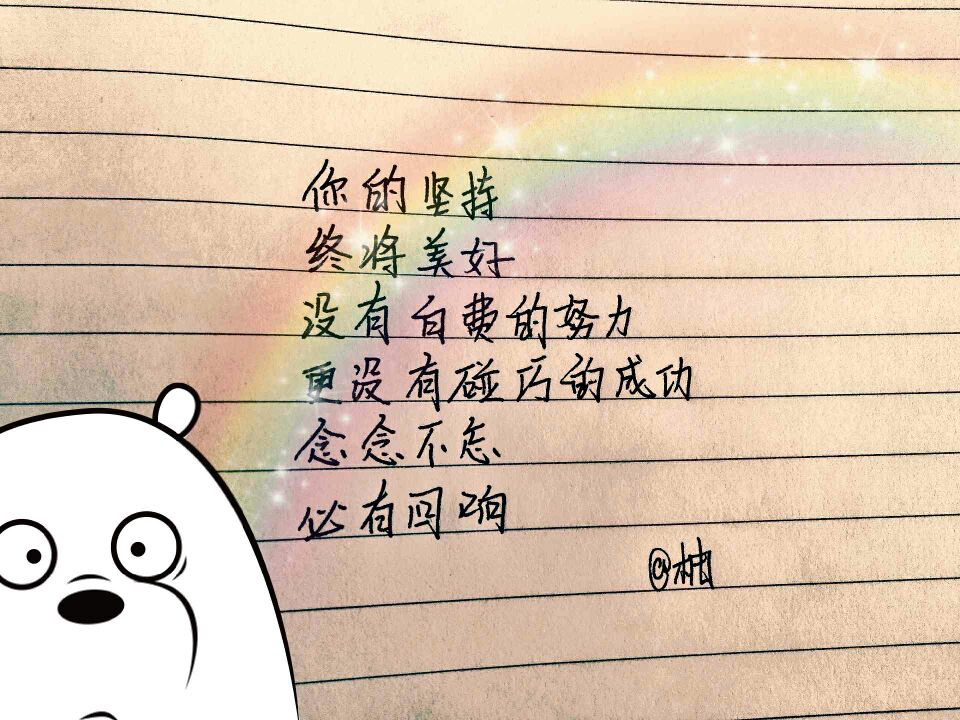 你的坚持
终将美好
没有白费的努力
更没有碰巧的成功
念念不忘
必有回响
@柚